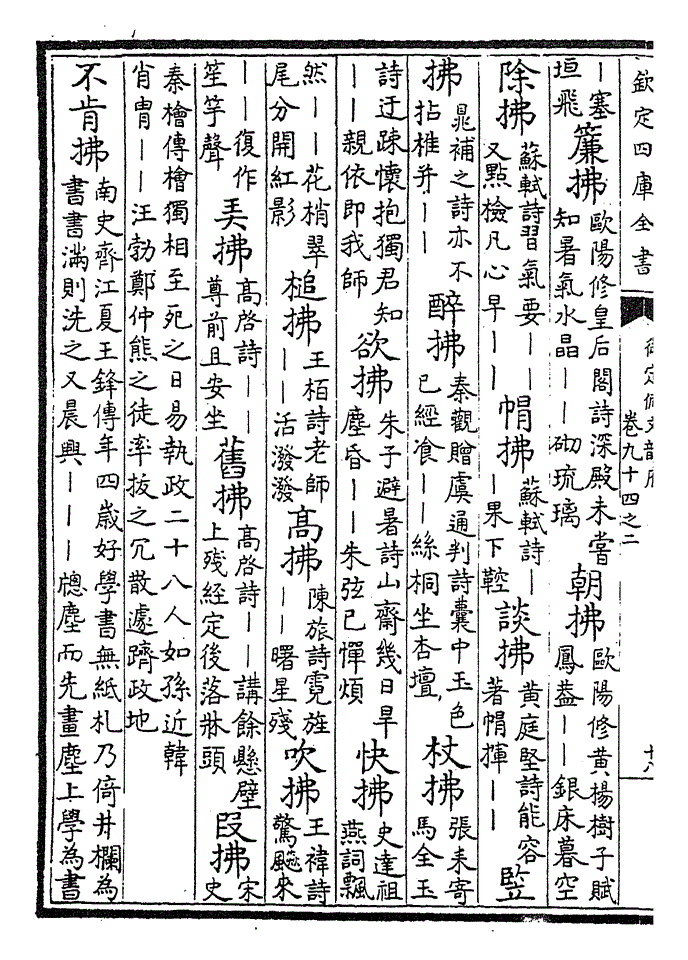 欽定四庫全書
御定佩文韻府
卷九十四之二
十八
｜塞
垣飛
簾拂
歐陽修皇后閣詩深殿未嘗
知暑氣水晶｜｜砌琉璃
朝拂
歐陽修黄楊樹子賦
鳳葢｜｜銀床暮空
除拂
蘇軾詩習氣要｜｜
又點檢凡心早｜｜
帽拂
蘇軾詩｜
｜果下鞚
談拂
黄庭堅詩能容
著帽揮｜｜
竪
拂
晁補之詩亦不
拈椎并｜｜
醉拂
秦觀贈虞通判詩囊中玉色
已經飡｜｜絲桐坐杏壇
杖拂
張耒寄
馬全玉
詩迂疎懷抱獨君知
｜｜親依即我師
欲拂
朱子避暑詩山齋幾日旱
塵昏｜｜朱弦已憚煩
快拂
史達祖
燕詞飄
然｜｜花梢翠
尾分開紅影
槌拂
王栢詩老師
｜｜活潑潑
高拂
陳旅詩霓旌
｜｜曙星殘
吹拂
王褘詩
驚飈來
｜｜復作
笙竽聲
拂
高啓詩｜｜
尊前且安坐
舊拂
高啓詩｜｜講餘懸壁
上殘經定後落牀頭
段拂
宋
史
秦檜傳檜獨相至死之日易執政二十八人如孫近韓
肖胄｜｜汪勃鄭仲熊之徒率拔之冗散遽躋政地
不肯拂
南史齊江夏王鋒傳年四歲好學書無紙札乃倚井欄為
書書滿則洗之又晨興｜｜｜牕塵而先畫塵上學為書